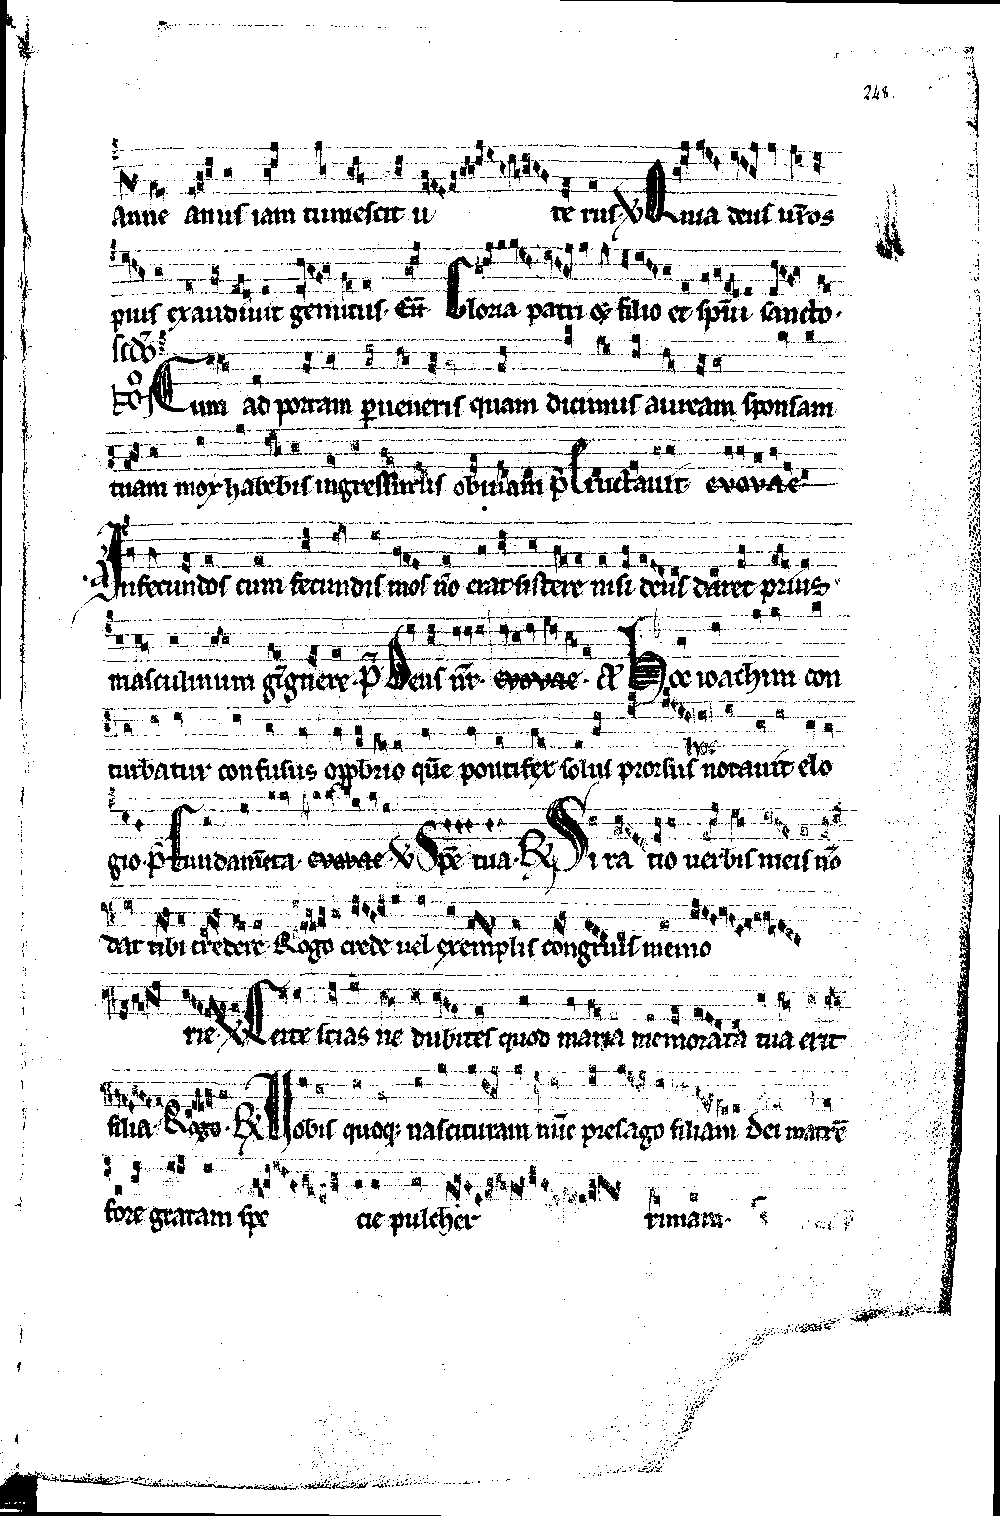 248.
Anne anus iam tumescit u te rus ℣ Quia deus ur̄os
pius exaudiuit gemitus. Eū Gloria patri & filio et sp̄ui sancto.
scdō
Cum ad portam ꝑueneris quam dicimus auream sponsam
tuam mox habebis ingressurus obuiam p̄ Eructauit evovae
a Infecundos cum fecundis mos nō erat sistere nisi deus daret prius
masculinum gīgnere. p̄ Deus nr̄. evovae. Hoc ioachim con
turbatur confusus opꝓbrio quē pontifex solus prorsus notauit elo
hoc
gio. p̄ Fundamēta. evovae ℣ Spē tua. ℟ Si ra tio uerbis meis nō
dat tibi credere Rogo crede uel exemplis congruis memo
rie ℣ Certe scias ne dubites quod maria memorata tua erit
filia. Rogo. ℟ Nobis quoq; nascituram nūc presago filiam dei matrē
fore gratam spe cie pulcher rimam.